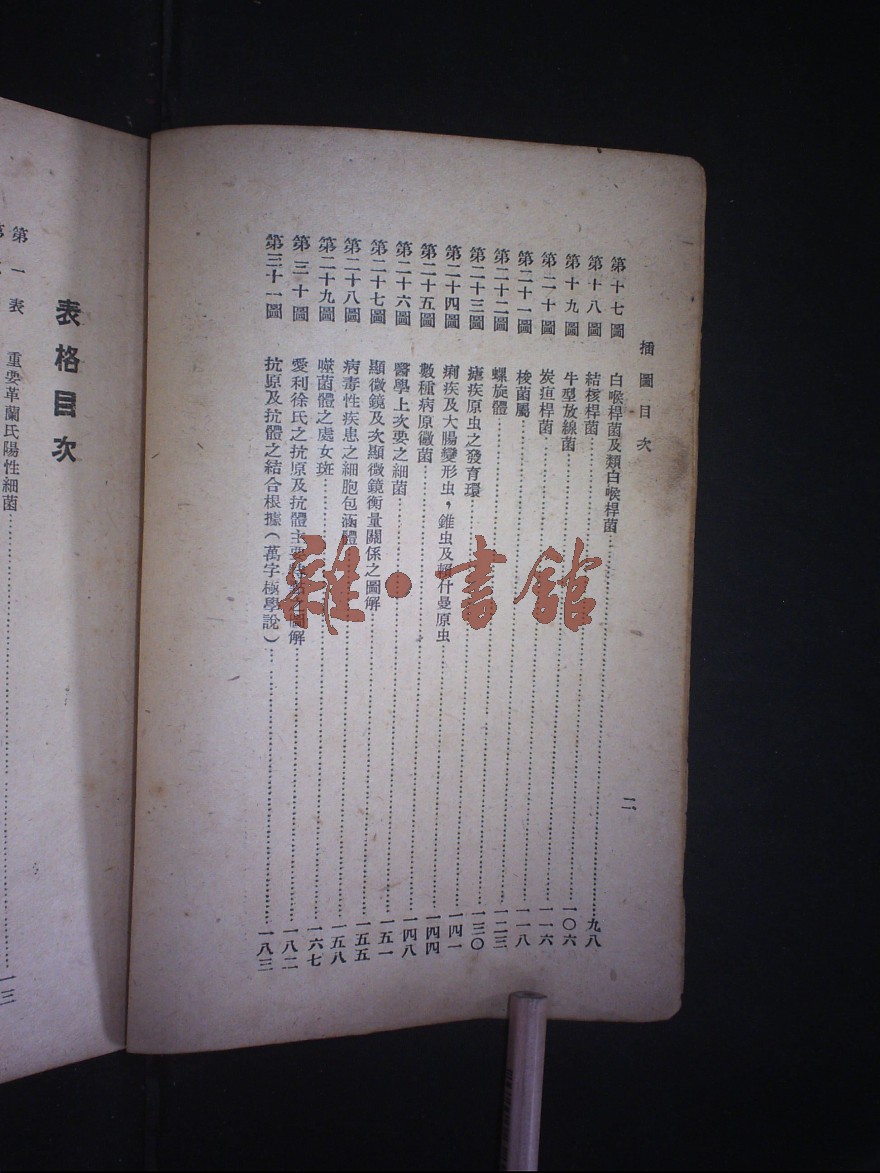 插圖目次 二
第十七圖 白喉桿菌及類白喉桿菌……九八
第十八圖 結核桿菌……一〇六
第十九圖 牛型放線菌……一一六
第二十圖 炭疽桿菌……一一八
第二十一圖 梭菌屬……一二三
第二十二圖 螺旋體……一三〇
第二十三圖 瘧疾原虫之發育環……一四一
第二十四圖 痢疾及大腸變形虫，錐虫及賴什曼原虫……一四四
第二十五圖 數種病原黴菌……一四八
第二十六圖 醫學上次要之細菌……一五一
第二十七圖 顯微鏡及次顯微鏡衡量關係之圖解……一五五
第二十八圖 病毒性疾患之細胞包涵體……一五八
第二十九圖 噬菌體之處女斑……一六七
第三十圖 愛利徐氏之抗原及抗體主要 之圖解……一八二
第三十一圖 抗原及抗體之結合根據（萬字極學說）……一八三
表格目次
第一表 重要革蘭氏陽性細菌……一三
第
雜·書館